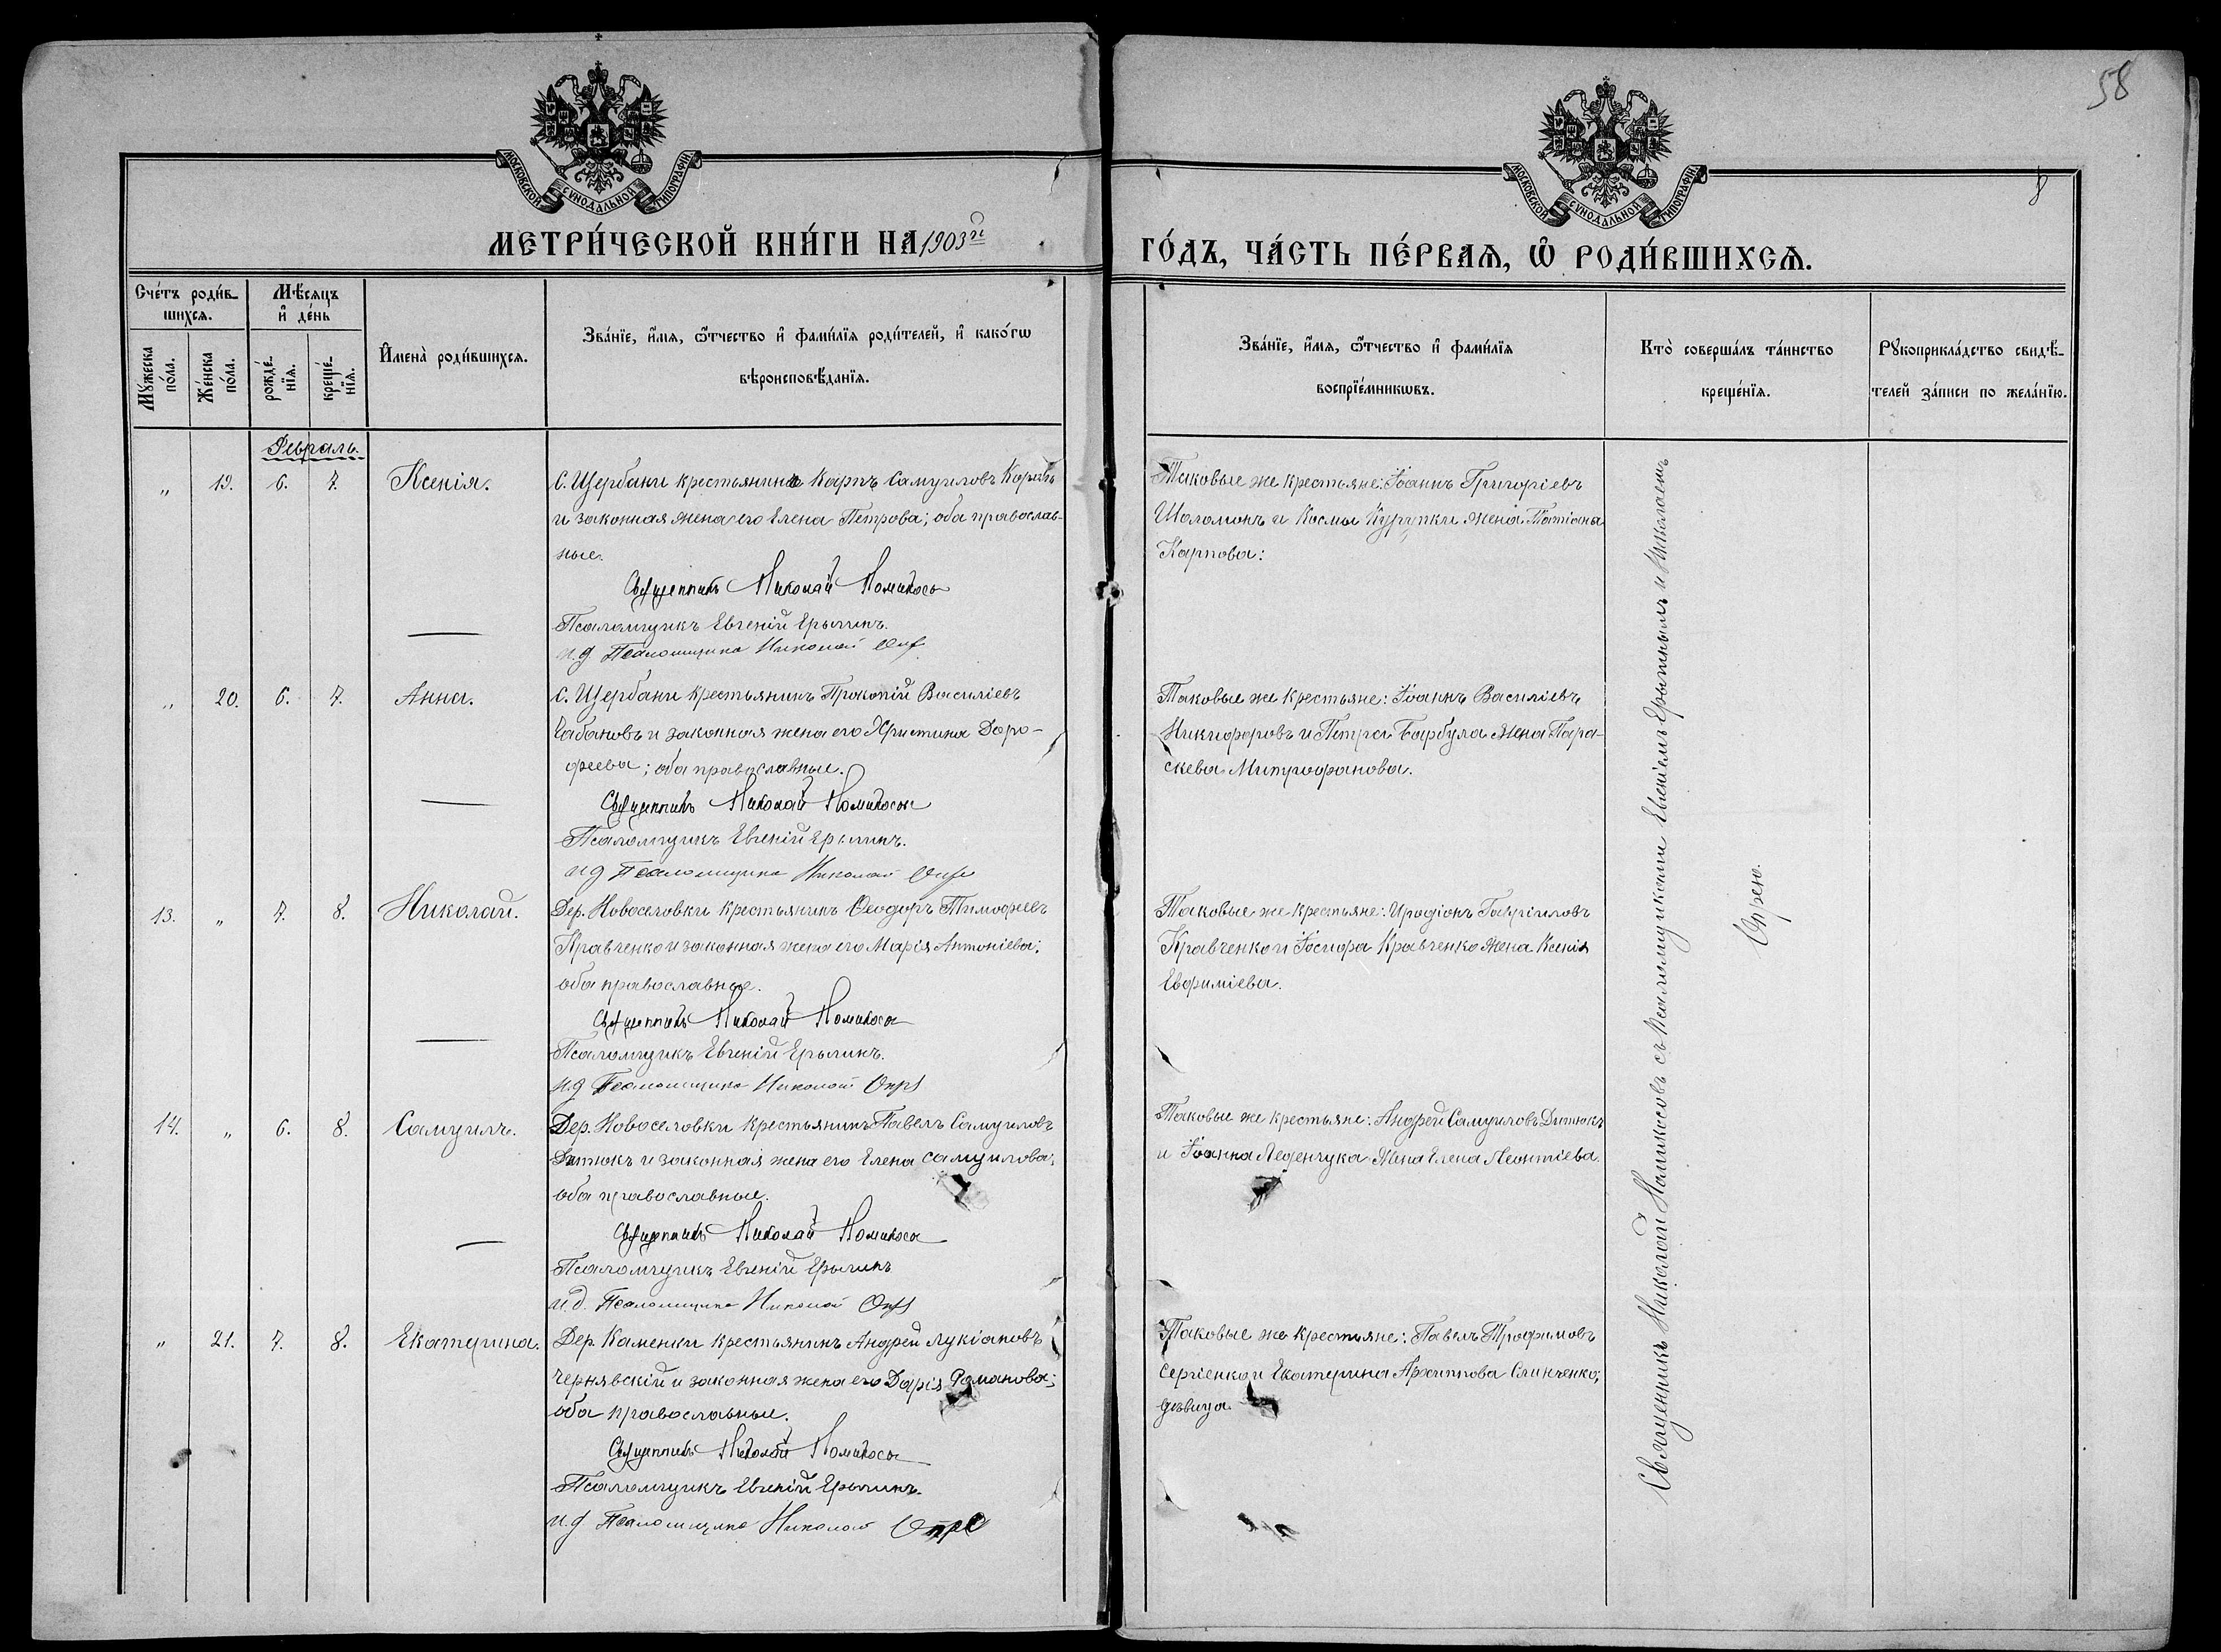 58
8
МОСКОВСКОЙ СѴНОДАЛЬНОЙ ТИПОГРАФІИ
МОСКОВСКОЙ СѴНОДАЛЬНОЙ ТИПОГРАФІИ
МЕТРИ́ЧЕСКОЙ КНИ́ГИ НА 1903й
ГО́ДЪ, ЧА́СТЬ ПЕ́РВАѦ, Ѡ҆ РОДИ́ВШИХСѦ.
Сче́тъ роди́в-
шихсѧ.
Мꙋ́жеска
по́ла.
Же́нска
по́ла.
Мѣ́сѧцъ
и҆ де́нь
рожде́-
нїѧ.
креще́-
нїѧ.
И҆мена̀ роди́вшихсѧ.
Зва́нїе, и҆́мѧ, ѻ҆́тчество и҆ фами́лїѧ роди́телей, и҆ како́гѡ
вѣроисповѣ́данїѧ.
Зва́нїе, и҆́мѧ, ѻ҆́тчество и҆ фами́лїѧ
воспрїе́мникѡвъ.
Кто̀ соверша́лъ та́инство
креще́нїѧ.
Рꙋкоприкла́дство свидѣ́-
телей за́писи по жела́нїю.
Февраль.
„ 19. 6. 7. Ксенія.
С. Щербани крестьянинъ Карпъ Самуиловъ
и законная жена его Елена Петрова; оба православ-
ные.
Священникъ Николай
Псаломщикъ Евгеній Ерылинъ.
и.д Псаломщика Николай
Таковые же крестьяне: Іоаннъ Григоріевъ
Шаламонъ и Космы Курупки жена Татіана
Карпова:
„ 20. 6. 7. Анна.
С. Щербани крестьянинъ Прокопій Василіевъ
Чабановъ и законная жена его Христина Доро-
феева; оба православные.
Священникъ Николай
Псаломщикъ Евгеній Ерылинъ.
и д Псаломщика Николай
Таковые же крестьяне: Іоаннъ Василіевъ
Никифоровъ и Петра Барбула жена Пара-
скева Митрофанова.
13. „ 7. 8. Николай.
Дер. Новоселовки крестьянинъ Ѳеодоръ Тимофеевъ
Кравченко и законная жена его Марія Антоніева;
оба православные.
Священникъ Николай
Псаломщикъ Евгеній Ерылинъ.
и.д Псаломщика Николай
Таковые же крестьяне: Иродіонъ Гавріиловъ
Кравченко и Іосифа Кравченко жена Ксенія
Евфиміева.
14. „ 6. 8. Самуилъ.
Дер. Новоселовки крестьянинъ Павелъ Самуиловъ
Дитюкъ и законная жена его Елена Самуилова;
оба православные.
Священникъ Николай
Псаломщикъ Евгеній Ерылинъ
и.д. Псаломщика Николай
Таковые же крестьяне: Андрей Самуиловъ Дитюкъ
и Іоанна Леденчука жена Елена Леонтіева.
„ 21. 7. 8. Екатерина.
Дер. Каменки крестьянинъ Андрей Лукіановъ
Чернявскій и законная жена его Дарія Романова;
оба православные.
Священникъ Николай
Псаломщикъ Евгеній Ерылинъ.
и.д Псаломщика Николай
Таковые же крестьяне: Павелъ Трофимовъ
Сергіенко и Екатерина Архиппова Слинченко;
девица.
Священникъ Николай съ Псаломщиками Евгеніемъ Ерылинымъ и Николаемъ